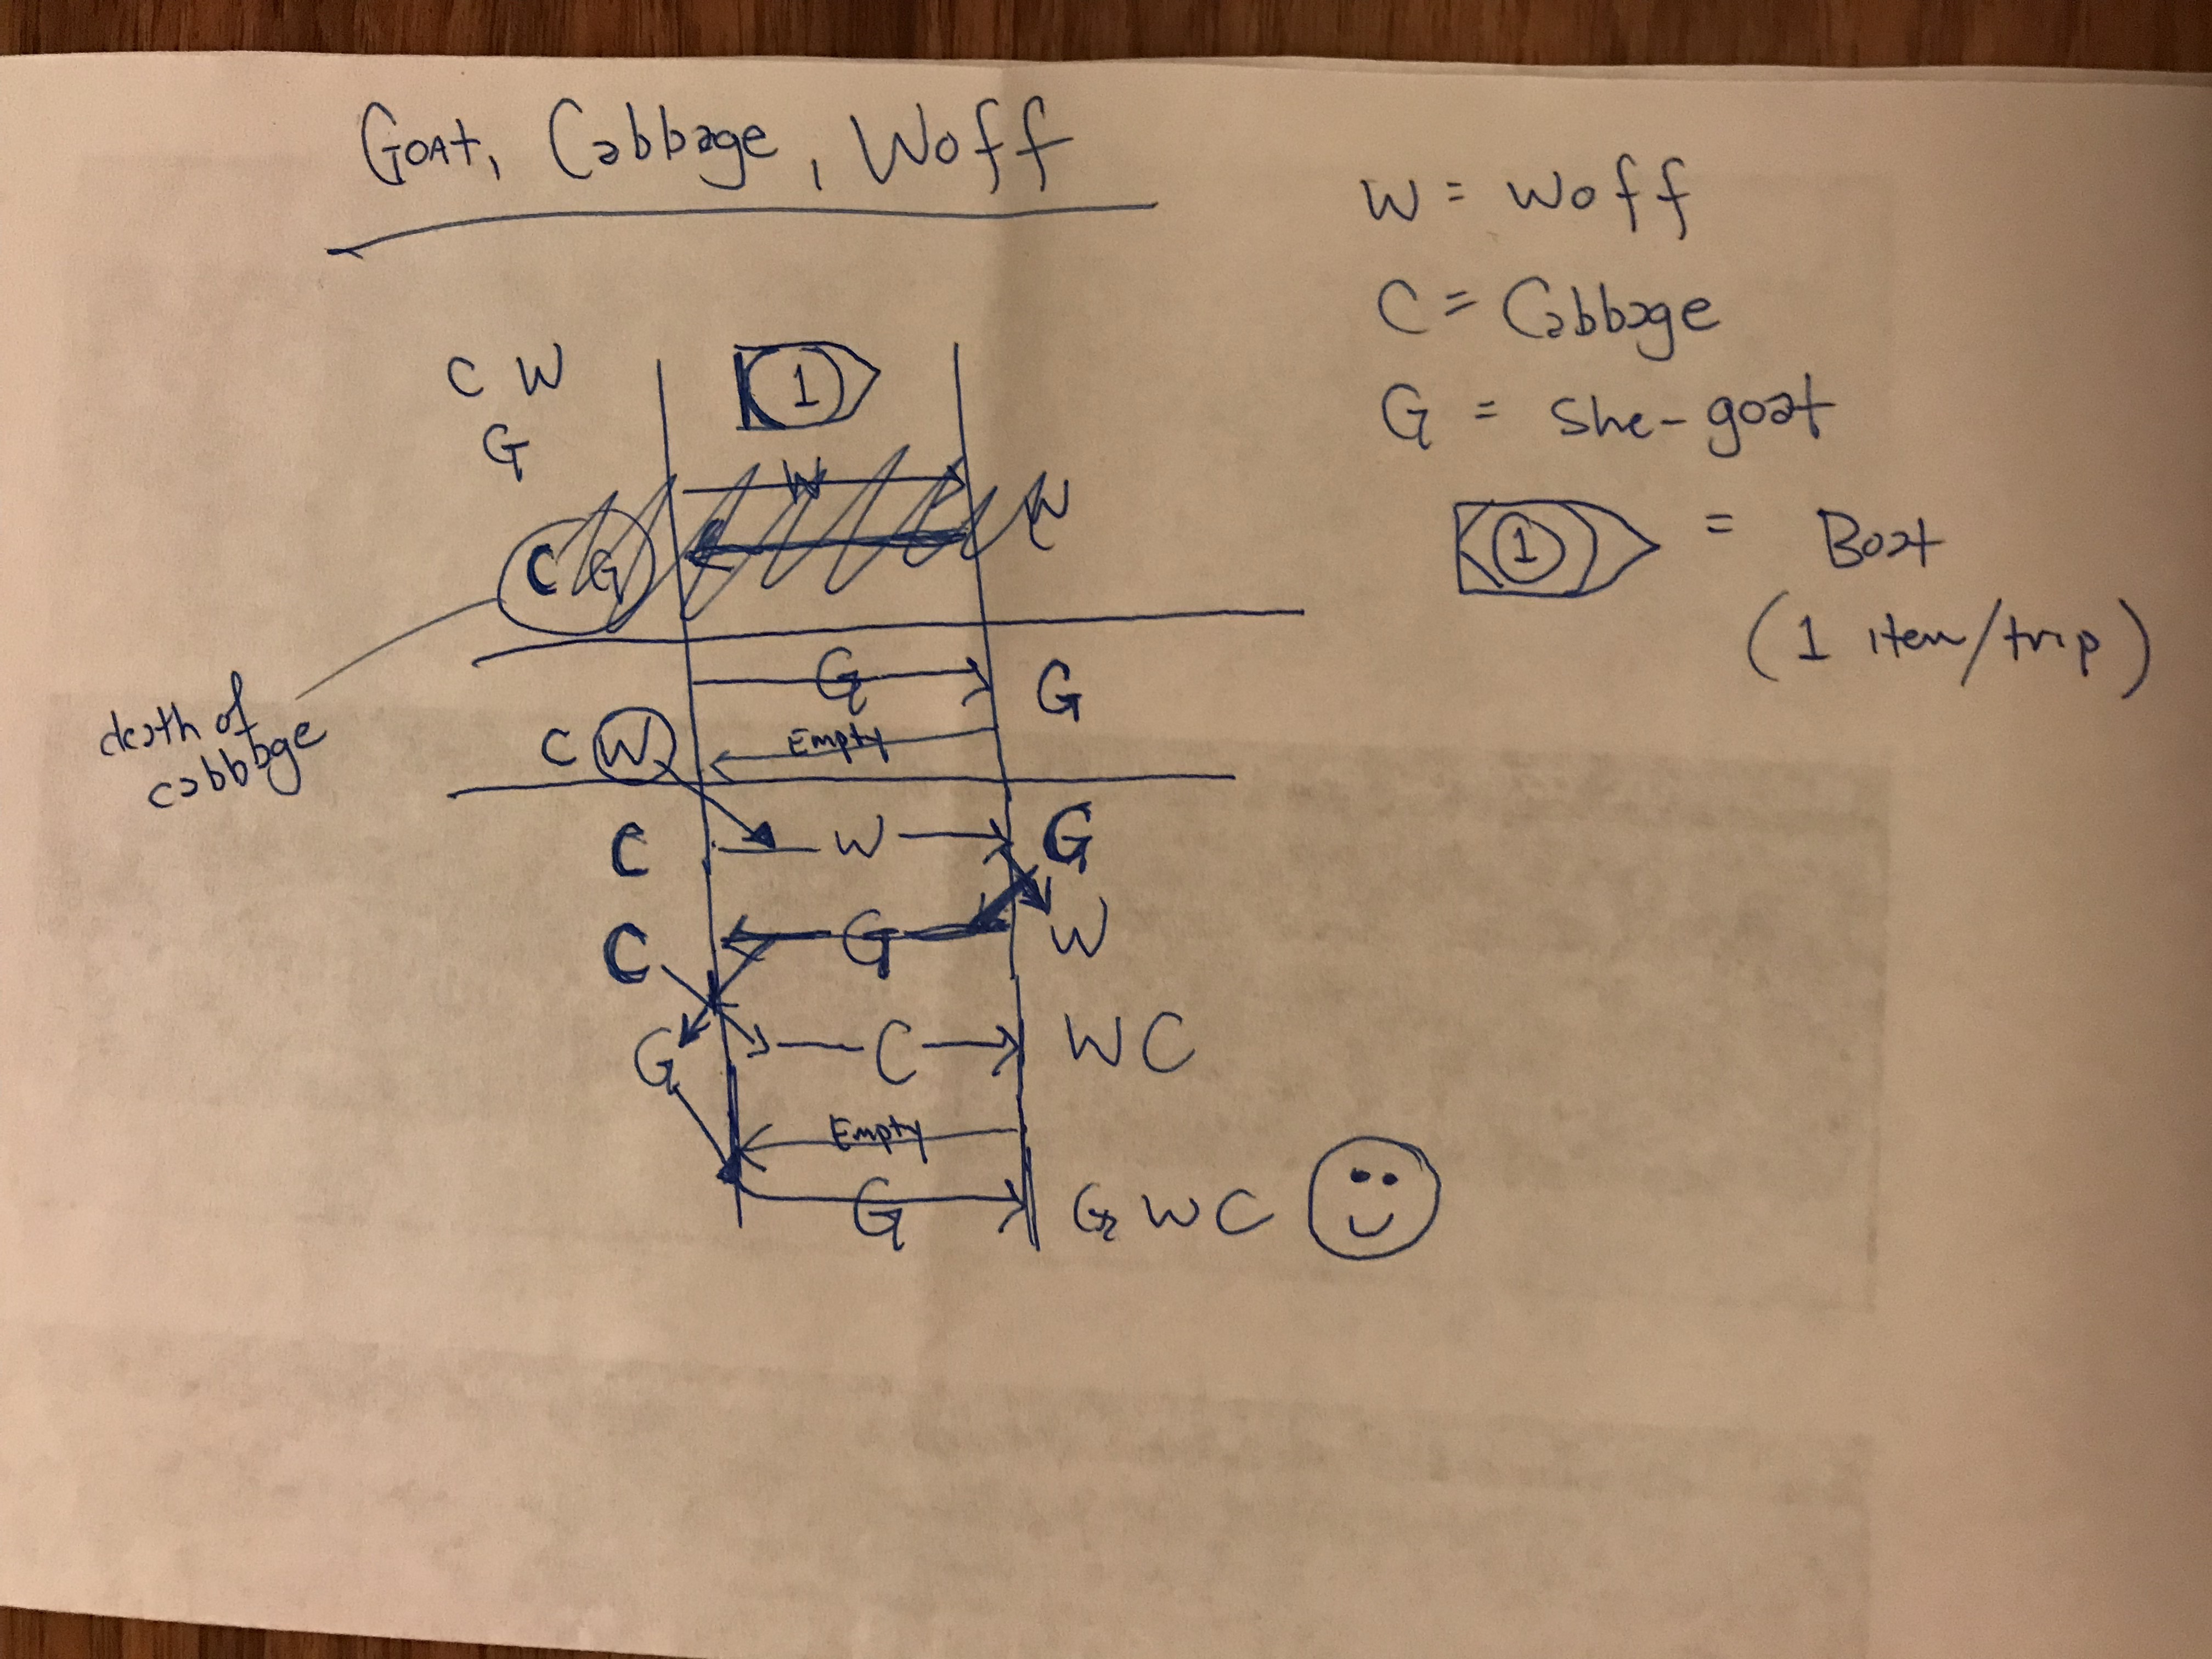 Goat, Cabbage, Woff
W = Woff
C = Cabbage
G = She-goat
1 = Boat
(1 item/trip)
C W
1
G
W
W
C G
death of
cabbbge
G
G
C W
Empty
C W G
C G W
G C W C
Empty
G G W C